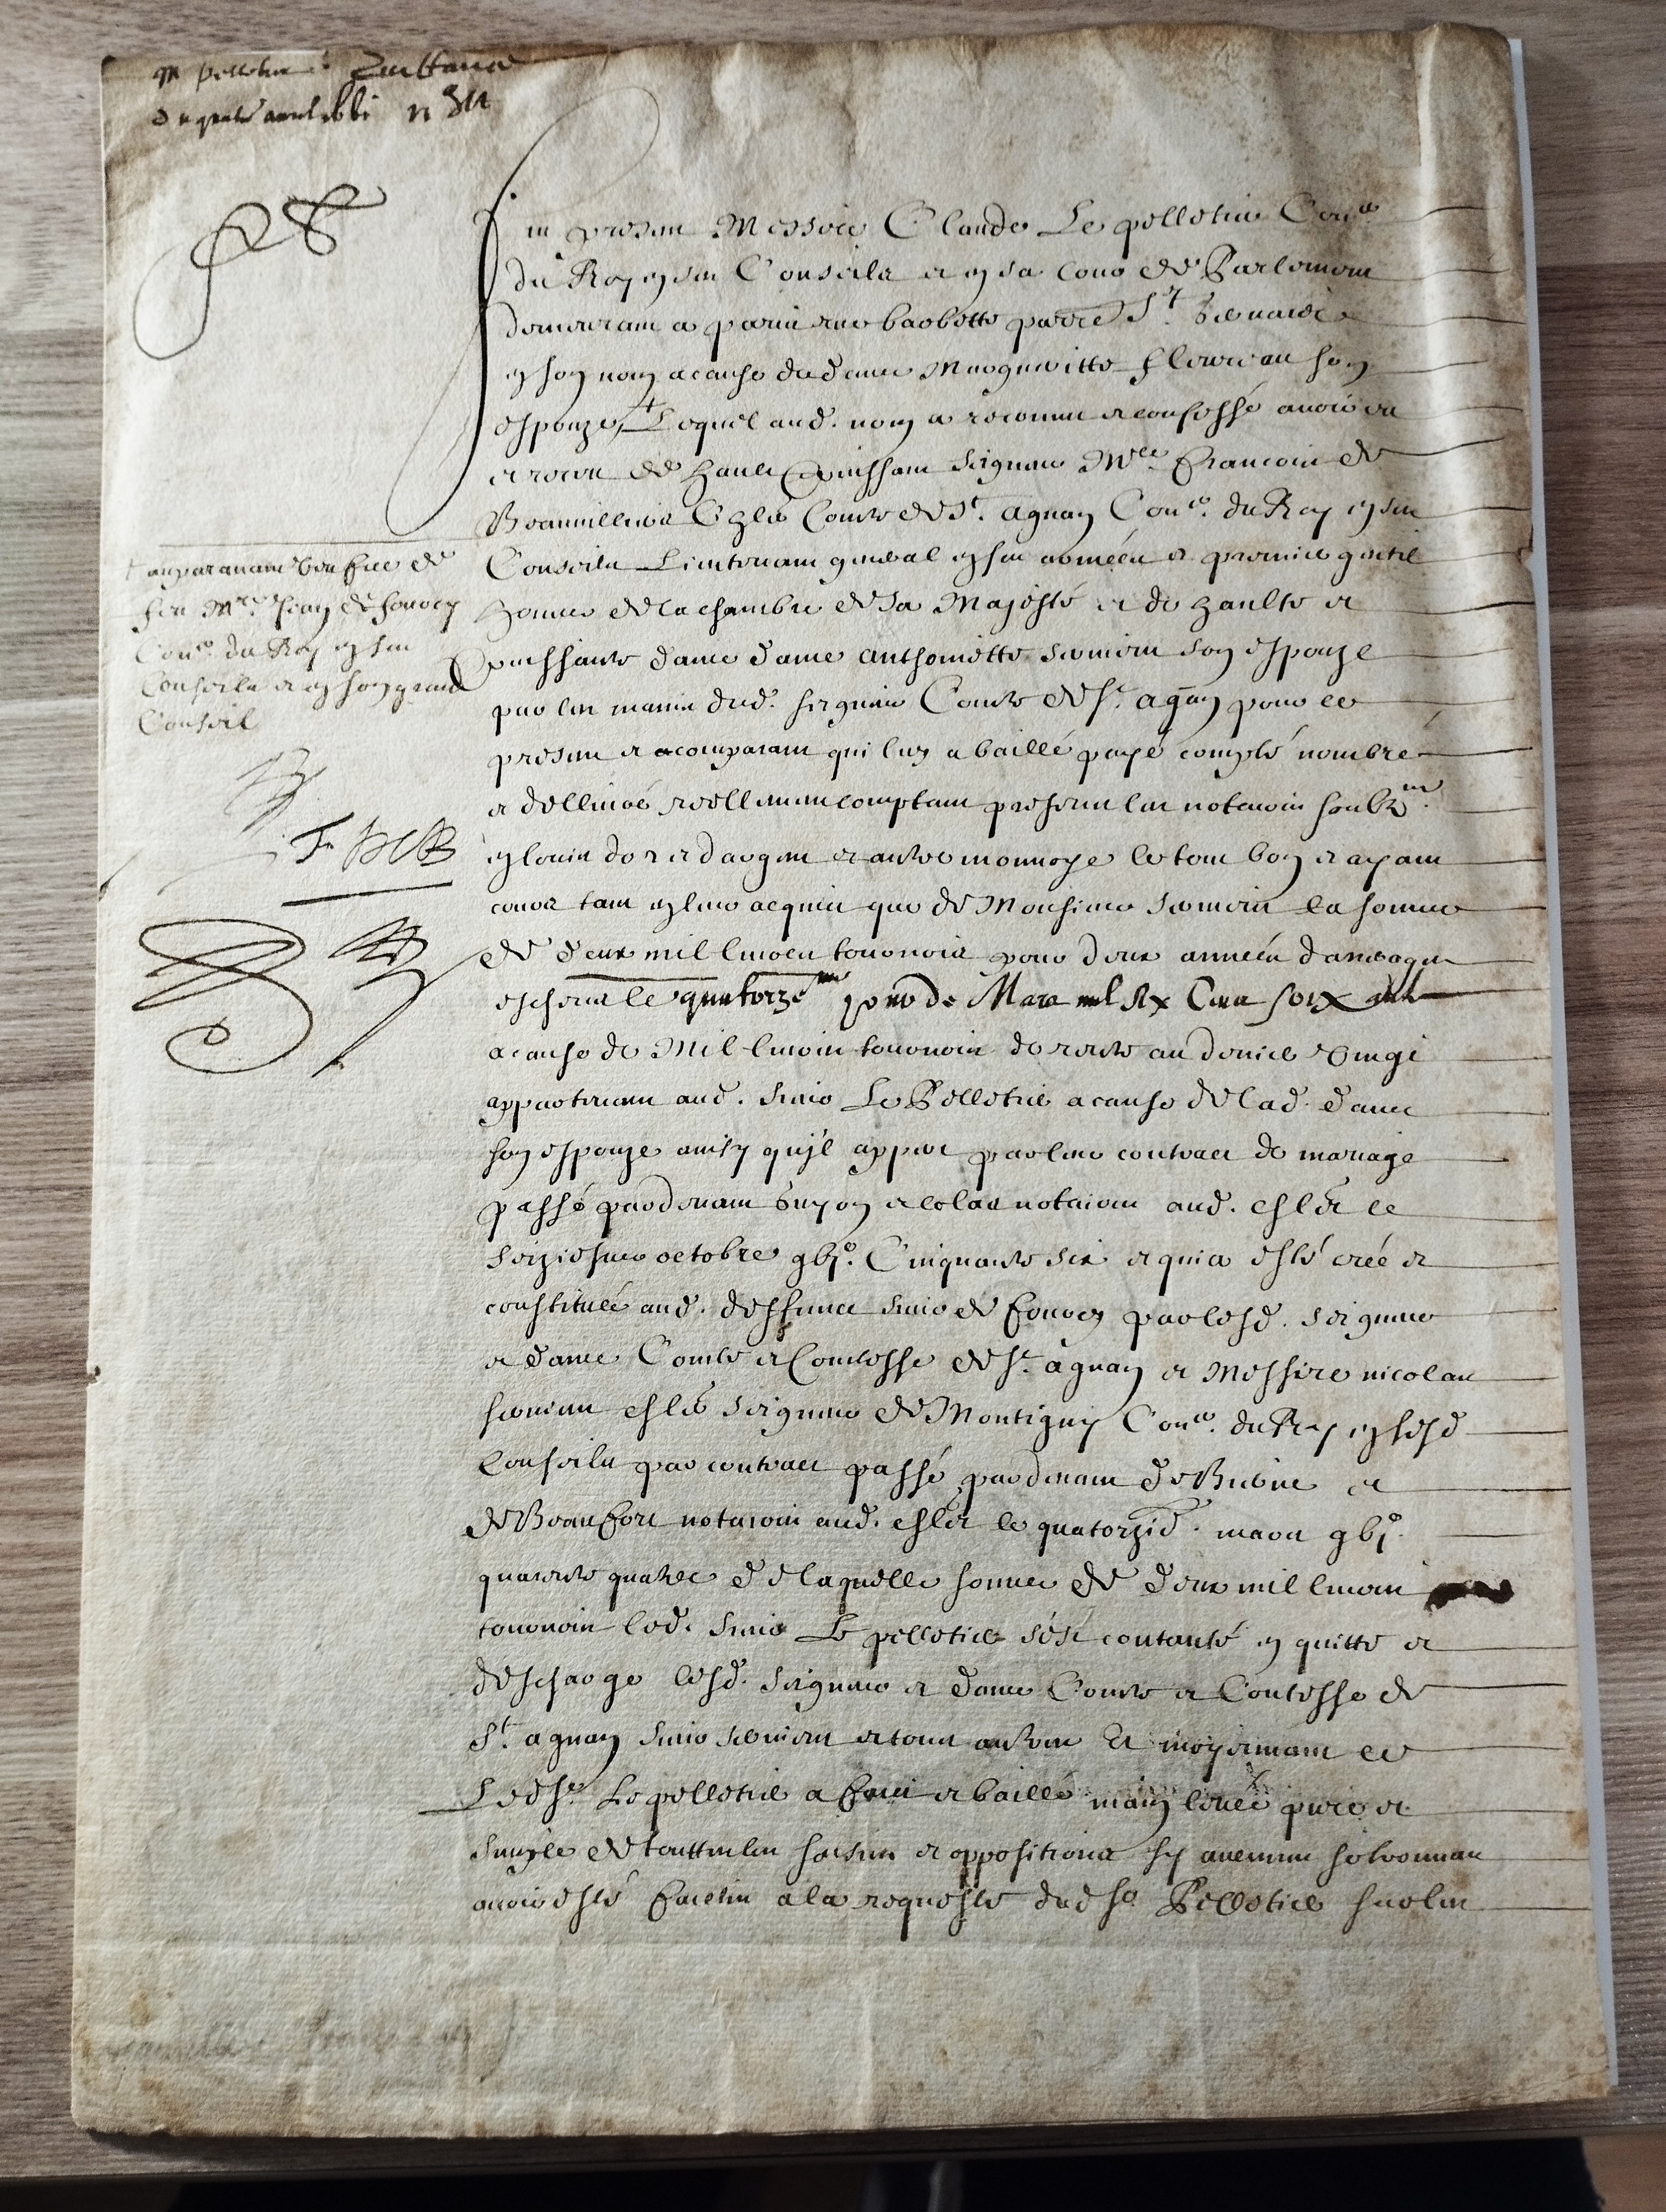 Mr Pelletier Quittance
du quatre avril 1661 n 311
Fut present Messire Claude Le pelletier Con.er
du Roy en ses Conseils et en sa Cour de Parlement
demeurant a paris rue barbette parroisse St Gervais
en son nom a cause de dame Margueritte fleuriau son
espouze, + Lequel aud. nom a reconnu et confessé avoir eu
et receu de hault et puissant seigneur M.re francois de
Beauvilliers Chlr Comte de St. agnan Con.er du Roy en ses
Conseils Lieutenant general en ses armées et premier gentil
homme de la chambre de Sa Majesté et de haulte et
puissante dame dame anthoinette servient son espouze
par les mains dud. seigneur Comte de St. agnan pour ce
present et acomparant qui luy a baillé payé compté nombré
et dellivré reellement comptant presens les notaires soubz.nez
en louis dor et dargent et autre monnoye le tout bon et ayant
cours tant en leur acquit que de Monsieur servient la somme
de deux mil livres tournois pour deux années darrerages
escheues le quatorze.me jour de Mars mil six Cens soix.te
a cause de Mil livres tournois de rente au denier vingt
appartenant aud. sieur Le Pelletier a cause de lad. dame
son espouze ainsy qu'il appert par leur contract de mariage
passé pardevant Guyon et colas notaires aud. chlet le
seiziesme octobre gbjc. Cinquante six et qui a esté créé et
constituée aud. deffunct sieur de fourcy par lesd. seigneur
et dame Comte et Comtesse de St. agnan et Messire nicolas
servient chlr seigneur de Montigny Con.er du Roy en sesd
Conseils par contract passé pardevant de Riviere et
de Beaufort notaires aud. chlet le quatorzie. mars gbjc.
quarente quatre de laquelle somme de deux mil livres
tournois led. sieur Le pelletier s'est contanté en quitte et
descharge lesd. seigneur et dame Comte et Contesse de
St. agnan sieur servient et tous autres Et moyennant ce
Led sr. Le pelletier a faict et baillé main levée pure et
simple de touttes les saisies et oppositions sy aucunes se trouvent
avoir esté faictes a la requeste dud sr Pelletier sur les
+ auparavant veufve de
feu M.re Jean de fourcy
Con.er du Roy en ses
Conseils et en son grand
Conseil
F. D B